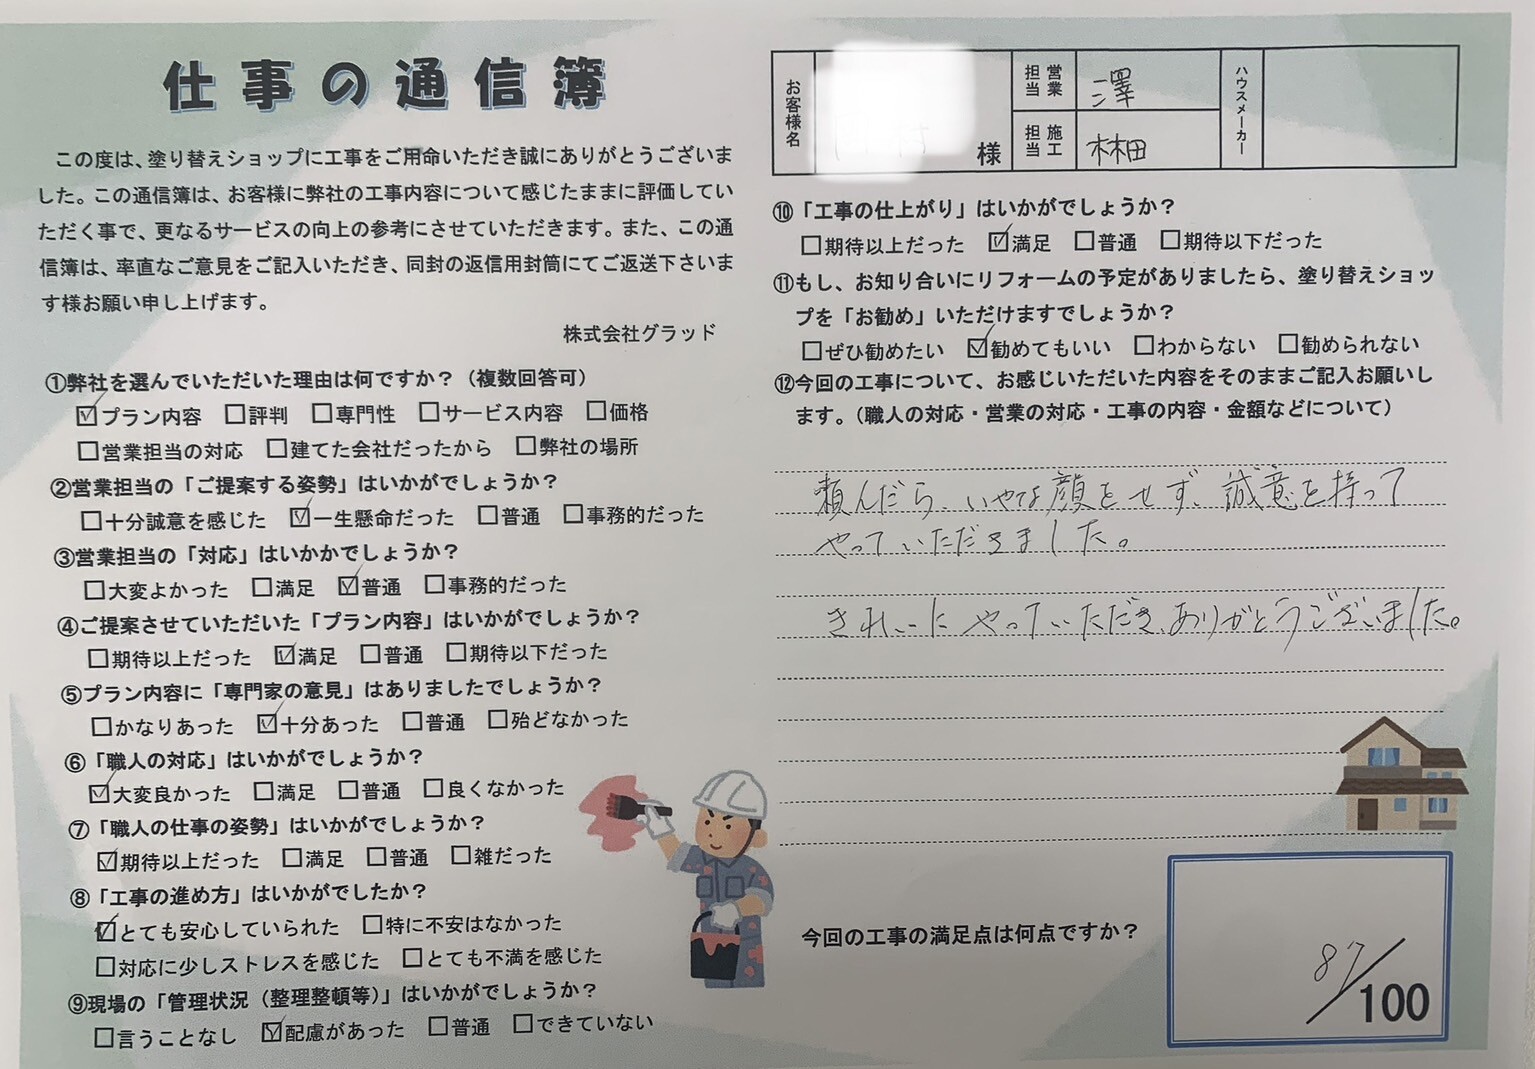 仕事の通信簿
この度は、塗り替えショップに工事をご用命いただき誠にありがとうございま
した。この通信簿は、お客様に弊社の工事内容について感じたままに評価してい
ただく事で、更なるサービスの向上の参考にさせていただきます。また、この通
信簿は、率直なご意見をご記入いただき、同封の返信用封筒にてご返送下さいま
す様お願い申し上げます。
株式会社グラッド
①弊社を選んでいただいた理由は何ですか?(複数回答可)
☑プラン内容 □評判 □専門性 □サービス内容 □価格
□営業担当の対応 □建てた会社だったから □弊社の場所
②営業担当の「ご提案する姿勢」はいかがでしょうか?
□十分誠意を感じた ☑一生懸命だった □普通 □事務的だった
③営業担当の「対応」はいかかでしょうか?
□大変よかった □満足 ☑普通 □事務的だった
④ご提案させていただいた「プラン内容」はいかがでしょうか?
□期待以上だった ☑満足 □普通 □期待以下だった
⑤プラン内容に「専門家の意見」はありましたでしょうか?
□かなりあった ☑十分あった □普通 □殆どなかった
⑥「職人の対応」はいかがでしょうか?
☑大変良かった □満足 □普通 □良くなかった
⑦「職人の仕事の姿勢」はいかがでしょうか?
☑期待以上だった □満足 □普通 □雑だった
⑧「工事の進め方」はいかがでしたか?
☑とても安心していられた □特に不安はなかった
□対応に少しストレスを感じた □とても不満を感じた
⑨現場の「管理状況(整理整頓等)」はいかがでしょうか?
□言うことなし ☑配慮があった □普通 □できていない
お客様名 様 営業担当 澤 ハウスメーカー
施工担当 林田
⑩「工事の仕上がり」はいかがでしょうか?
□期待以上だった ☑満足 □普通 □期待以下だった
⑪もし、お知り合いにリフォームの予定がありましたら、塗り替えショッ
プを「お勧め」いただけますでしょうか?
□ぜひ勧めたい ☑勧めてもいい □わからない □勧められない
⑫今回の工事について、お感じいただいた内容をそのままご記入お願いし
ます。(職人の対応・営業の対応・工事の内容・金額などについて)
頼んだら、いやな顔をせず、誠意を持って
やっていただきました。
きれいにやっていただき、ありがとうございました。
今回の工事の満足点は何点ですか?
87/100